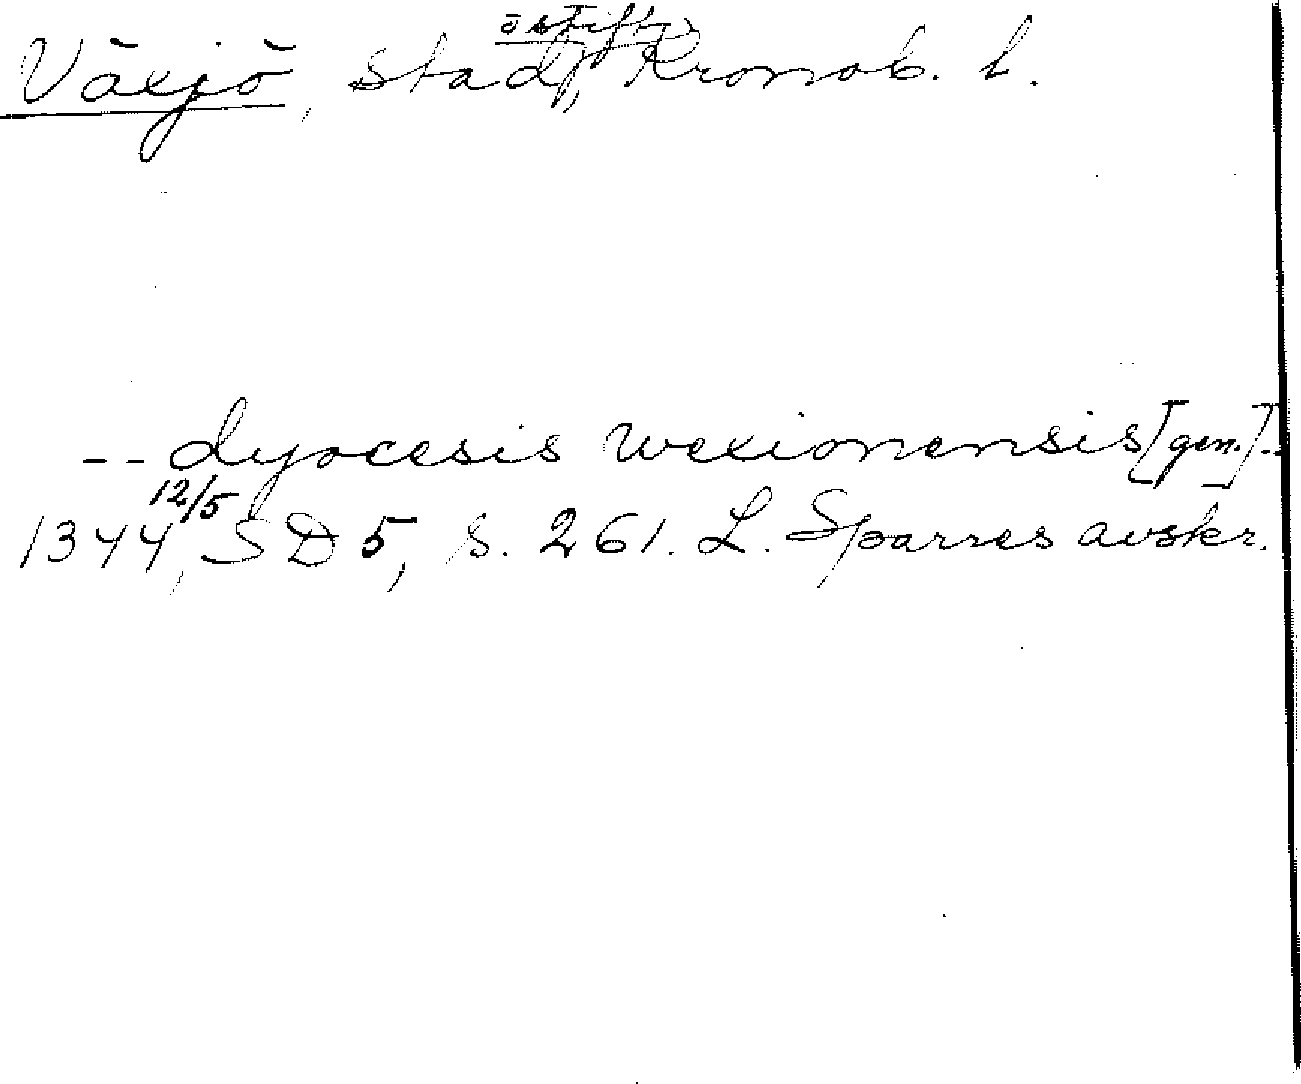 Växjö, stad, Kronob. l.
-- dyocesis wexionensis [gen.] --
1344 12/5, SD 5, s. 261. L. Sparres avskr.